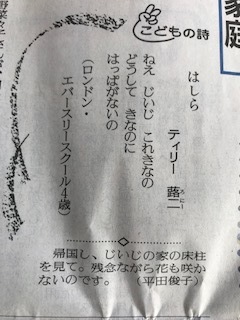 家庭
こどもの詩
はしら
ティリー 蕗二
ろニー
ねえ じいじ これきなの
どうして きなのに
はっぱがないの
（ロンドン・
エバースリースクール4歳）
帰国し、じいじの家の床柱
を見て。残念ながら花も咲か
ないのです。 （平田俊子）